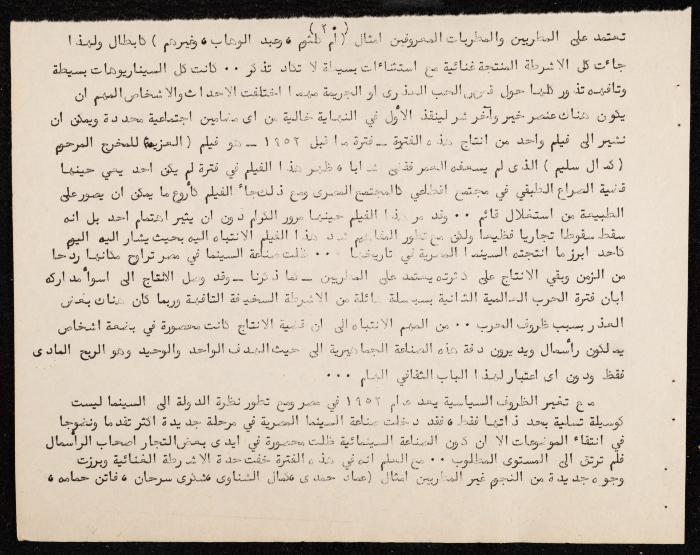 ( ٢ )
تعتمد على المطربين والمطربات المعروفين امثال ( أم كلثوم ، وعبد الوهاب ، وغيرهم ) كابطال ولهذا
جاءت كل الاشرطة المنتجة غنائية مع استثناءات بسيطة لا تكاد تذكر .. كانت كل السيناريوهات بسيطة
وتافهه تدور كلها حول قصص الحب العذرى او الجريمة مهما اختلفت الاحداث والاشخاص المهم ان
يكون هناك عنصر خير وآخر شر لينقذ الأول في النهاية خالية من اى مضامين اجتماعية محددة ويمكن ان
نشير الى فيلم واحد من انتاج هذه الفترة ــ فترة ما قبل ١٩٥٢ ــ هو فيلم ( العزيمة ) للمخرج المرحوم
( كمال سليم ) الذى لم يسعفه العمر فقضى شابا ، ظهر هذا الفيلم في فترة لم يكن احد يعي حينها
قضية الصراع الطبقي في مجتمع اقطاعي كالمجتمع المصرى ومع ذلك جاء الفيلم كأروع ما يمكن ان يصور على
الطبيعة من استغلال قائم .. وقد مر هذا الفيلم حينها مرور الكرام دون ان يثير اهتمام احد بل انه
سقط سقوطا تجاريا فظيعا ولكن مع تطور المفاهيم شد هذا الفيلم الانتباه اليه بحيث يشار اليه اليوم
كاحد ابرز ما انتجته السينما المصرية في تاريخها ... ظلت صناعة السينما في مصر تراوح مكانها ردحا
من الزمن وبقي الانتاج على كثرته يعتمد على المطربين ــ كما ذكرنا ــ وقد وصل الانتاج الى اسوأ مداركه
ابان فترة الحرب العالمية الثانية بسلسلة هائلة من الاشرطة السخيفة التافهة وربما كان هناك بعض
العذر بسبب ظروف الحرب .. من المهم الانتباه الى ان قضية الانتاج كانت محصورة في بضعة اشخاص
يملكون رأسمال ويديرون دفة هذه الصناعة الجماهيرية الى حيث الهدف الواحد والوحيد وهو الربح المادى
فقط ودون اى اعتبار لهذا الباب الثقافي الهام ...
مع تغير الظروف السياسية بعد عام ١٩٥٢ في مصر ومع تطور نظرة الدولة الى السينما ليست
كوسيلة تسلية بحد ذاتها فقط ، فقد دخلت صناعة السينما المصرية في مرحلة جديدة اكثر تقدما ونضوجا
في انتقاء الموضوعات الا ان كون الصناعة السينمائية ظلت محصورة في ايدى بعض التجار اصحاب الرأسمال
فلم ترتق الى المستوى المطلوب .. مع العلم انه في هذه الفترة خفت حدة الاشرطة الغنائية وبرزت
وجوه جديدة من النجوم غير المطربين امثال ( عماد حمدى ، كمال الشناوى ، شكرى سرحان ، فاتن حمامه ،